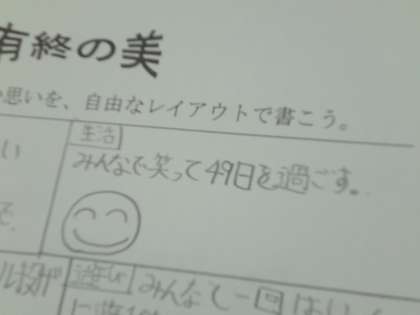 有終の美
思いを、自由なレイアウトで書こう。
生活
みんなで笑って49日を過ごす。
い
で、
ル投げ
みんなで一回